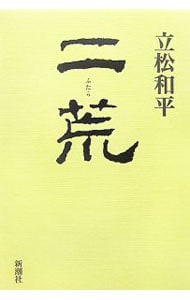 立松和平
二荒
ふたら
新潮社